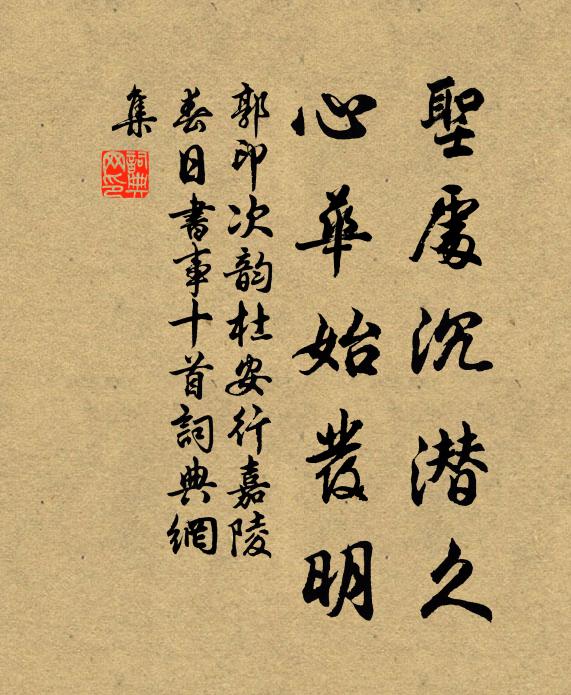 聖處沉潛久
心華始發明
郭印次韵杜安行嘉陵
春日書事十首詞典網
集
詞典
网印